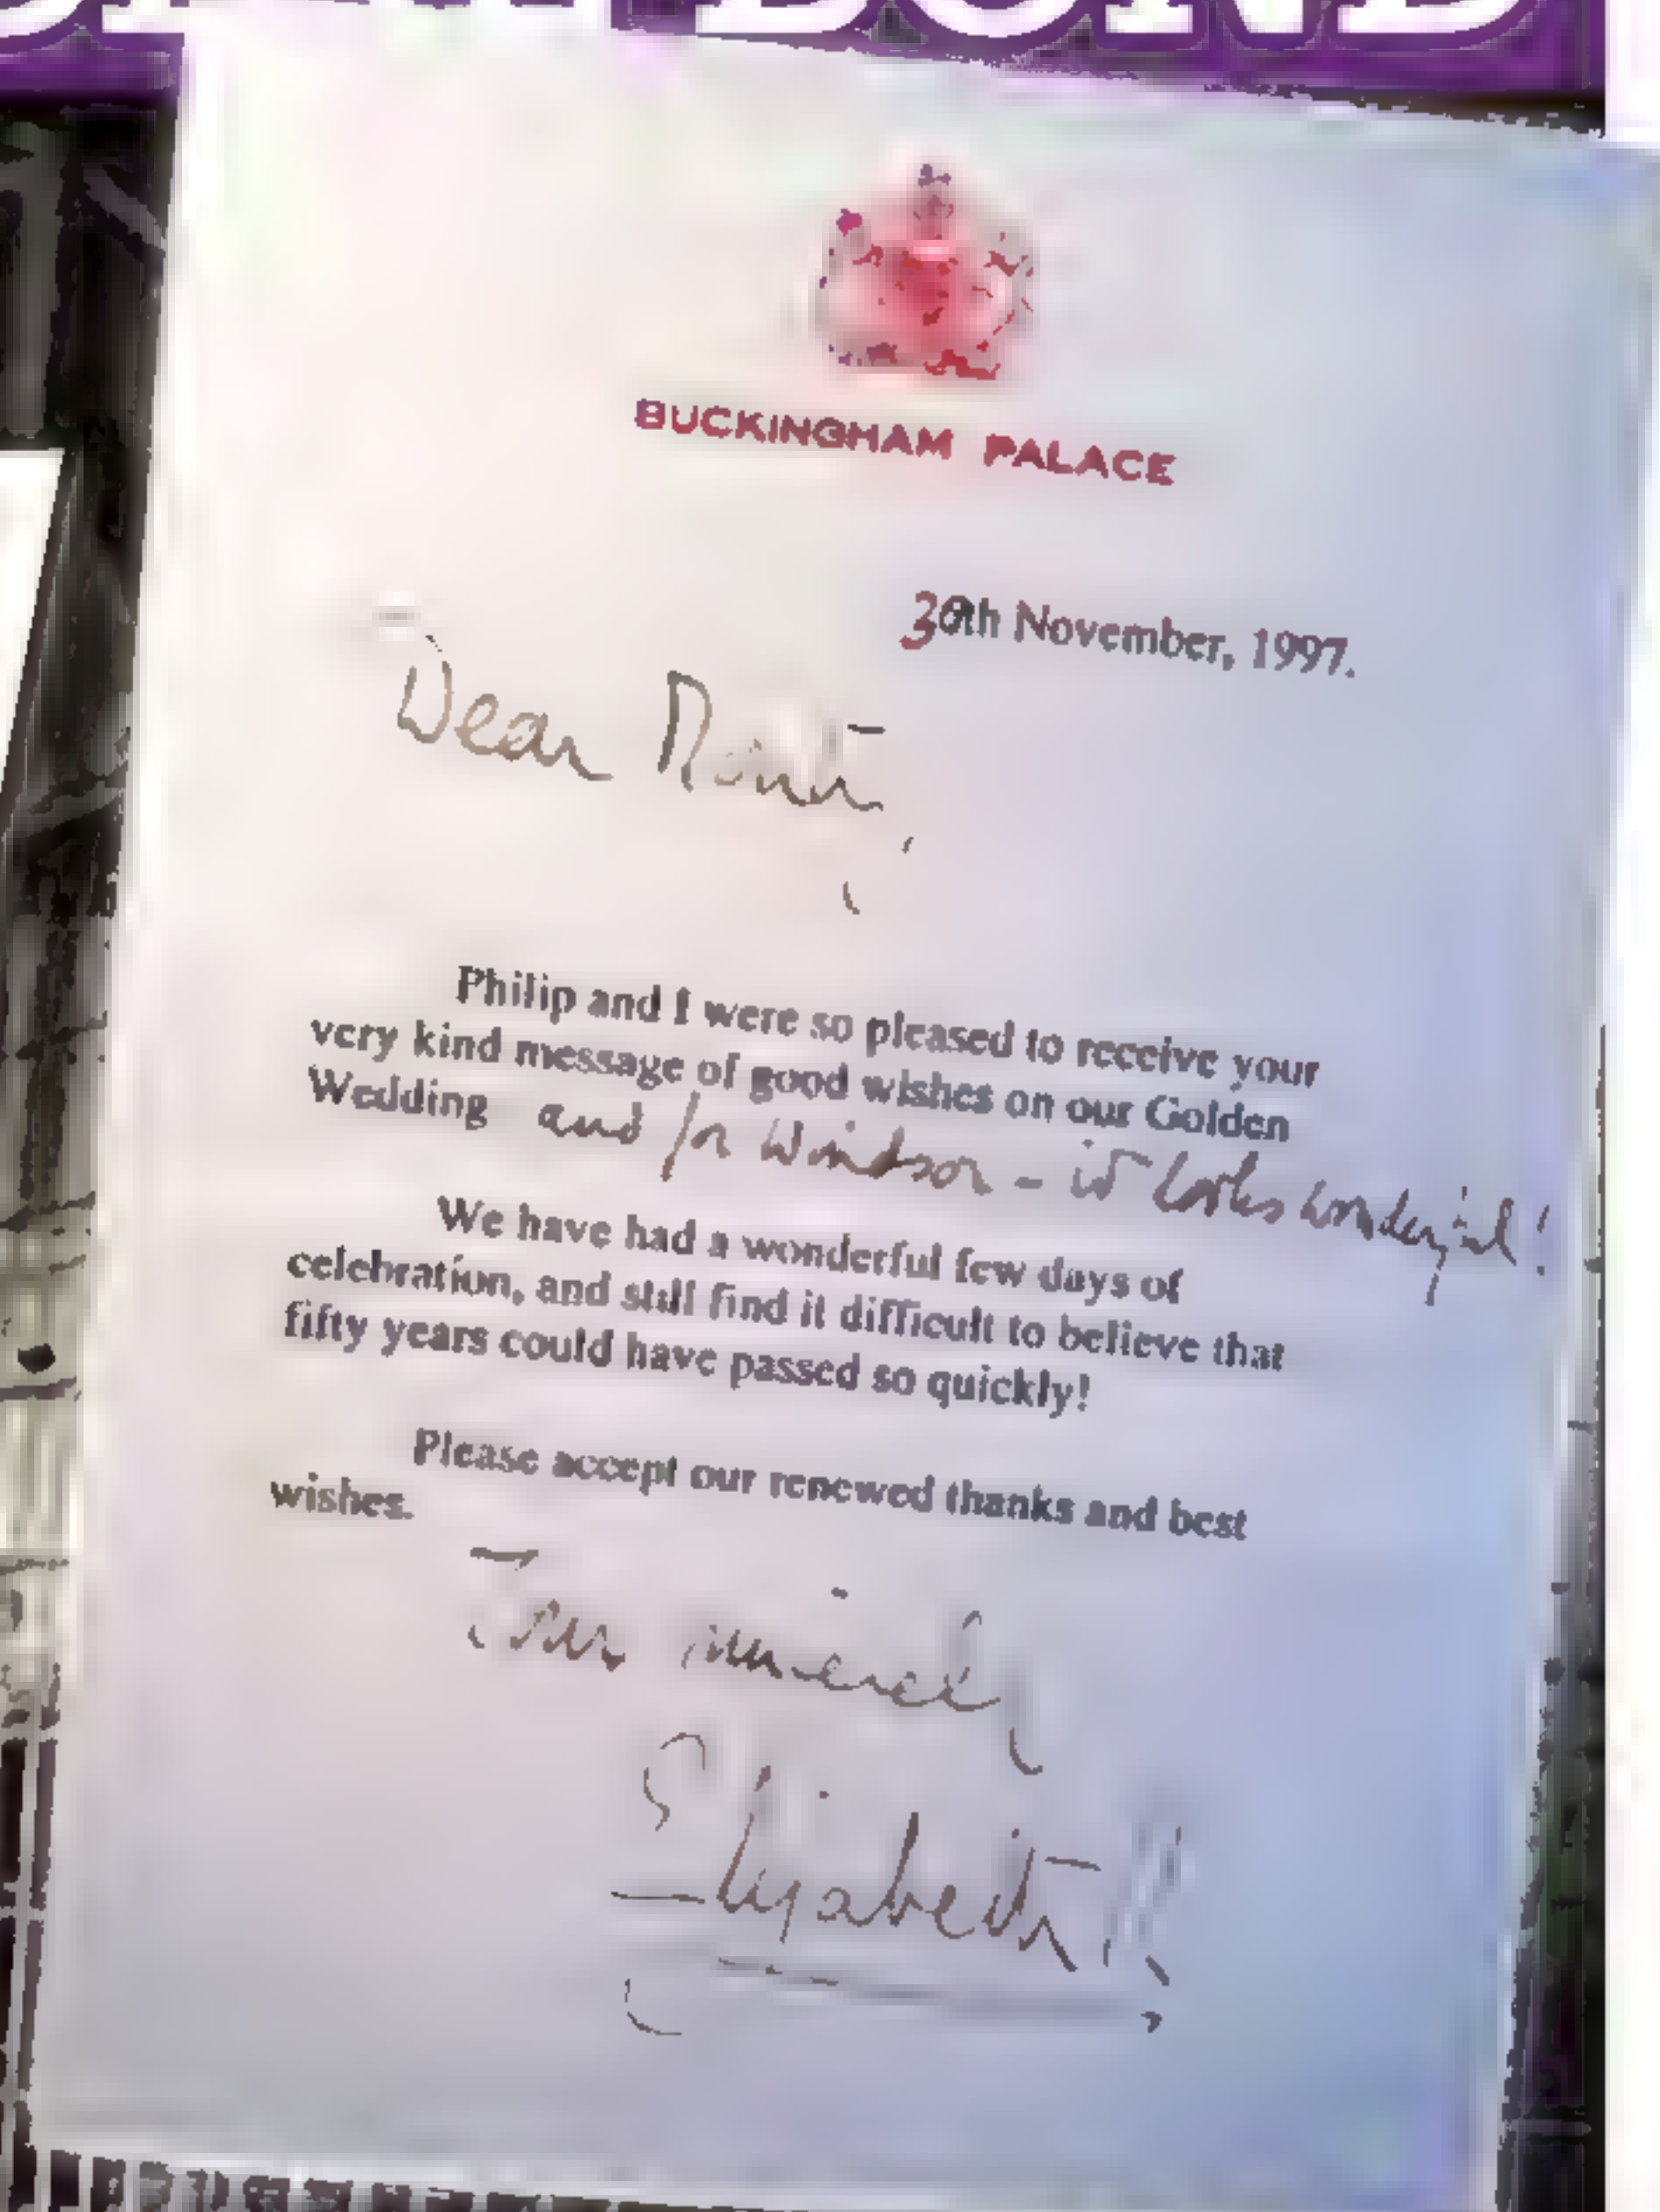 BOND
BUCKINGHAM PALACE
30th November, 1997.
Dear
Philip and I were so pleased to receive your
very kind message of good wishes on our Golden
Wedding and for Windsor - it looks wonderful!
We have had a wonderful few days of
celebration, and still find it difficult to believe that
fifty years could have passed so quickly!
Please accept our renewed thanks and best
wishes.
Yours sincerely
Elizabeth R